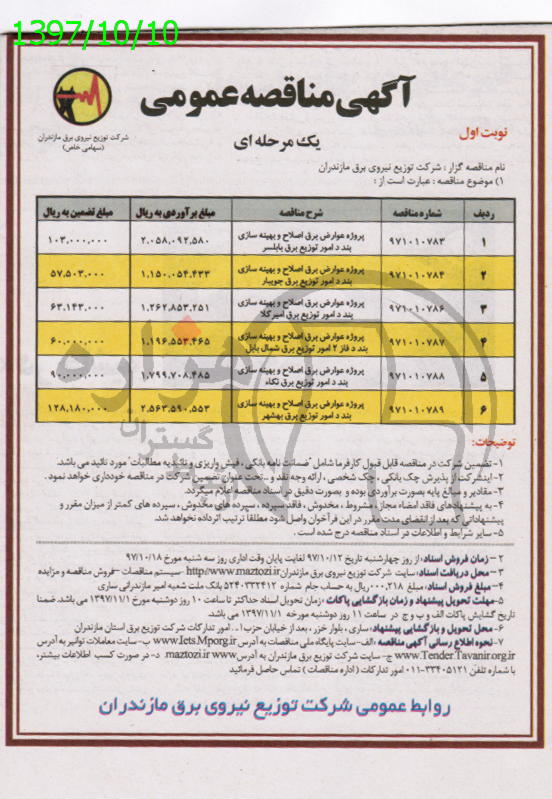 1397/10/10
آگهی مناقصه عمومی
شرکت توزیع نیروی برق مازندران
(سهامی خاص)
نوبت اول
یک مرحله ای
نام مناقصه گزار : شرکت توزیع نیروی برق مازندران
۱) موضوع مناقصه : عبارت است از :
ردیف شماره مناقصه شرح مناقصه مبلغ برآوردی به ریال مبلغ تضمین به ریال
۱ ۹۷۱۰۱۰۷۸۳ پروژه عوارض برق اصلاح و بهینه سازی بند د امور توزیع برق بابلسر ۲.۰۵۸.۰۹۲.۵۸۰ ۱۰۳.۰۰۰.۰۰۰
۲ ۹۷۱۰۱۰۷۸۴ پروژه عوارض برق اصلاح و بهینه سازی بند د امور توزیع برق جویبار ۱.۱۵۰.۰۵۴.۴۳۳ ۵۷.۵۰۳.۰۰۰
۳ ۹۷۱۰۱۰۷۸۶ پروژه عوارض برق اصلاح و بهینه سازی بند د امور توزیع برق امیرکلا ۱.۲۶۲.۸۵۳.۲۵۱ ۶۳.۱۴۳.۰۰۰
۴ ۹۷۱۰۱۰۷۸۷ پروژه عوارض برق اصلاح و بهینه سازی بند د فاز ۲ امور توزیع برق شمال بابل ۱.۱۹۶.۵۵۳.۴۶۵ ۶۰.۰۰۰.۰۰۰
۵ ۹۷۱۰۱۰۷۸۸ پروژه عوارض برق اصلاح و بهینه سازی بند د امور توزیع برق نکاء ۱.۷۹۹.۷۰۸.۴۸۵ ۹۰.۰۰۰.۰۰۰
۶ ۹۷۱۰۱۰۷۸۹ پروژه عوارض برق اصلاح و بهینه سازی بند د امور توزیع برق بهشهر ۲.۵۶۳.۵۹۰.۵۵۳ ۱۲۸.۱۸۰.۰۰۰
هزاره
گستران
توضیحات:
۱- تضمین شرکت در مناقصه قابل قبول کارفرما شامل "ضمانت نامه بانکی ، فیش واریزی و تائیدیه مطالبات" مورد تائید می باشد.
۲- اینشرکت از پذیرش چک بانکی ، چک شخصی ، ارائه وجه نقد و ... تحت عنوان تضمین شرکت در مناقصه خودداری خواهد نمود .
۳- مقادیر و مبالغ پایه بصورت برآوردی بوده و بصورت دقیق در اسناد مناقصه اعلام میگردد.
۴- به پیشنهادهای فاقد امضاء مجاز ، مشروط ، مخدوش ، فاقد سپرده ، سپرده های مخدوش ، سپرده های کمتر از میزان مقرر و
پیشنهاداتی که بعد از انقضای مدت مقرر در این فراخوان واصل شود مطلقا ترتیب اثر داده نخواهد شد.
۵- سایر شرایط و اطلاعات در اسناد مناقصه درج شده است .
۲- زمان فروش اسناد : از روز چهارشنبه تاریخ ۹۷/۱۰/۱۲ لغایت پایان وقت اداری روز سه شنبه مورخ ۹۷/۱۰/۱۸
۳- محل دریافت اسناد : سایت شرکت توزیع نیروی برق مازندران http//www.maztozi.ir - سیستم مناقصات - فروش مناقصه و مزایده
۴- مبلغ فروش اسناد : مبلغ ۰۰۰,۲۱۸ ریال به حساب جام شماره ۵۲۴۰۳۳۲۴۱۲ بانک ملت شعبه امیر مازندرانی ساری
۵- مهلت تحویل پیشنهاد و زمان بازگشایی پاکات : زمان تحویل اسناد حداکثر تا ساعت ۱۰ روز دوشنبه مورخ ۱۳۹۷/۱۱/۱ می باشد. ضمنا
تاریخ گشایش پاکات الف و ب و ج در ساعت ۱۱ روز دوشنبه مورخه ۱۳۹۷/۱۱/۱ می باشد.
۶- محل تحویل و بازگشایی پیشنهاد : ساری ، بلوار خزر ، بعد از خیابان حزب ا... امور تدارکات شرکت توزیع برق استان مازندران
۷- نحوه اطلاع رسانی آگهی مناقصه : الف- سایت پایگاه ملی مناقصات به آدرس www.Iets.Mporg.ir ب- سایت معاملات توانیر به آدرس
www.Tender.Tavanir.org.ir ج- سایت شرکت توزیع برق مازندران به آدرس www.maztozi.ir د- در صورت کسب اطلاعات بیشتر،
با شماره تلفن ۳۳۴۰۵۱۲۱-۰۱۱ امور تدارکات (اداره مناقصات) تماس حاصل فرمائید
روابط عمومی شرکت توزیع نیروی برق مازندران